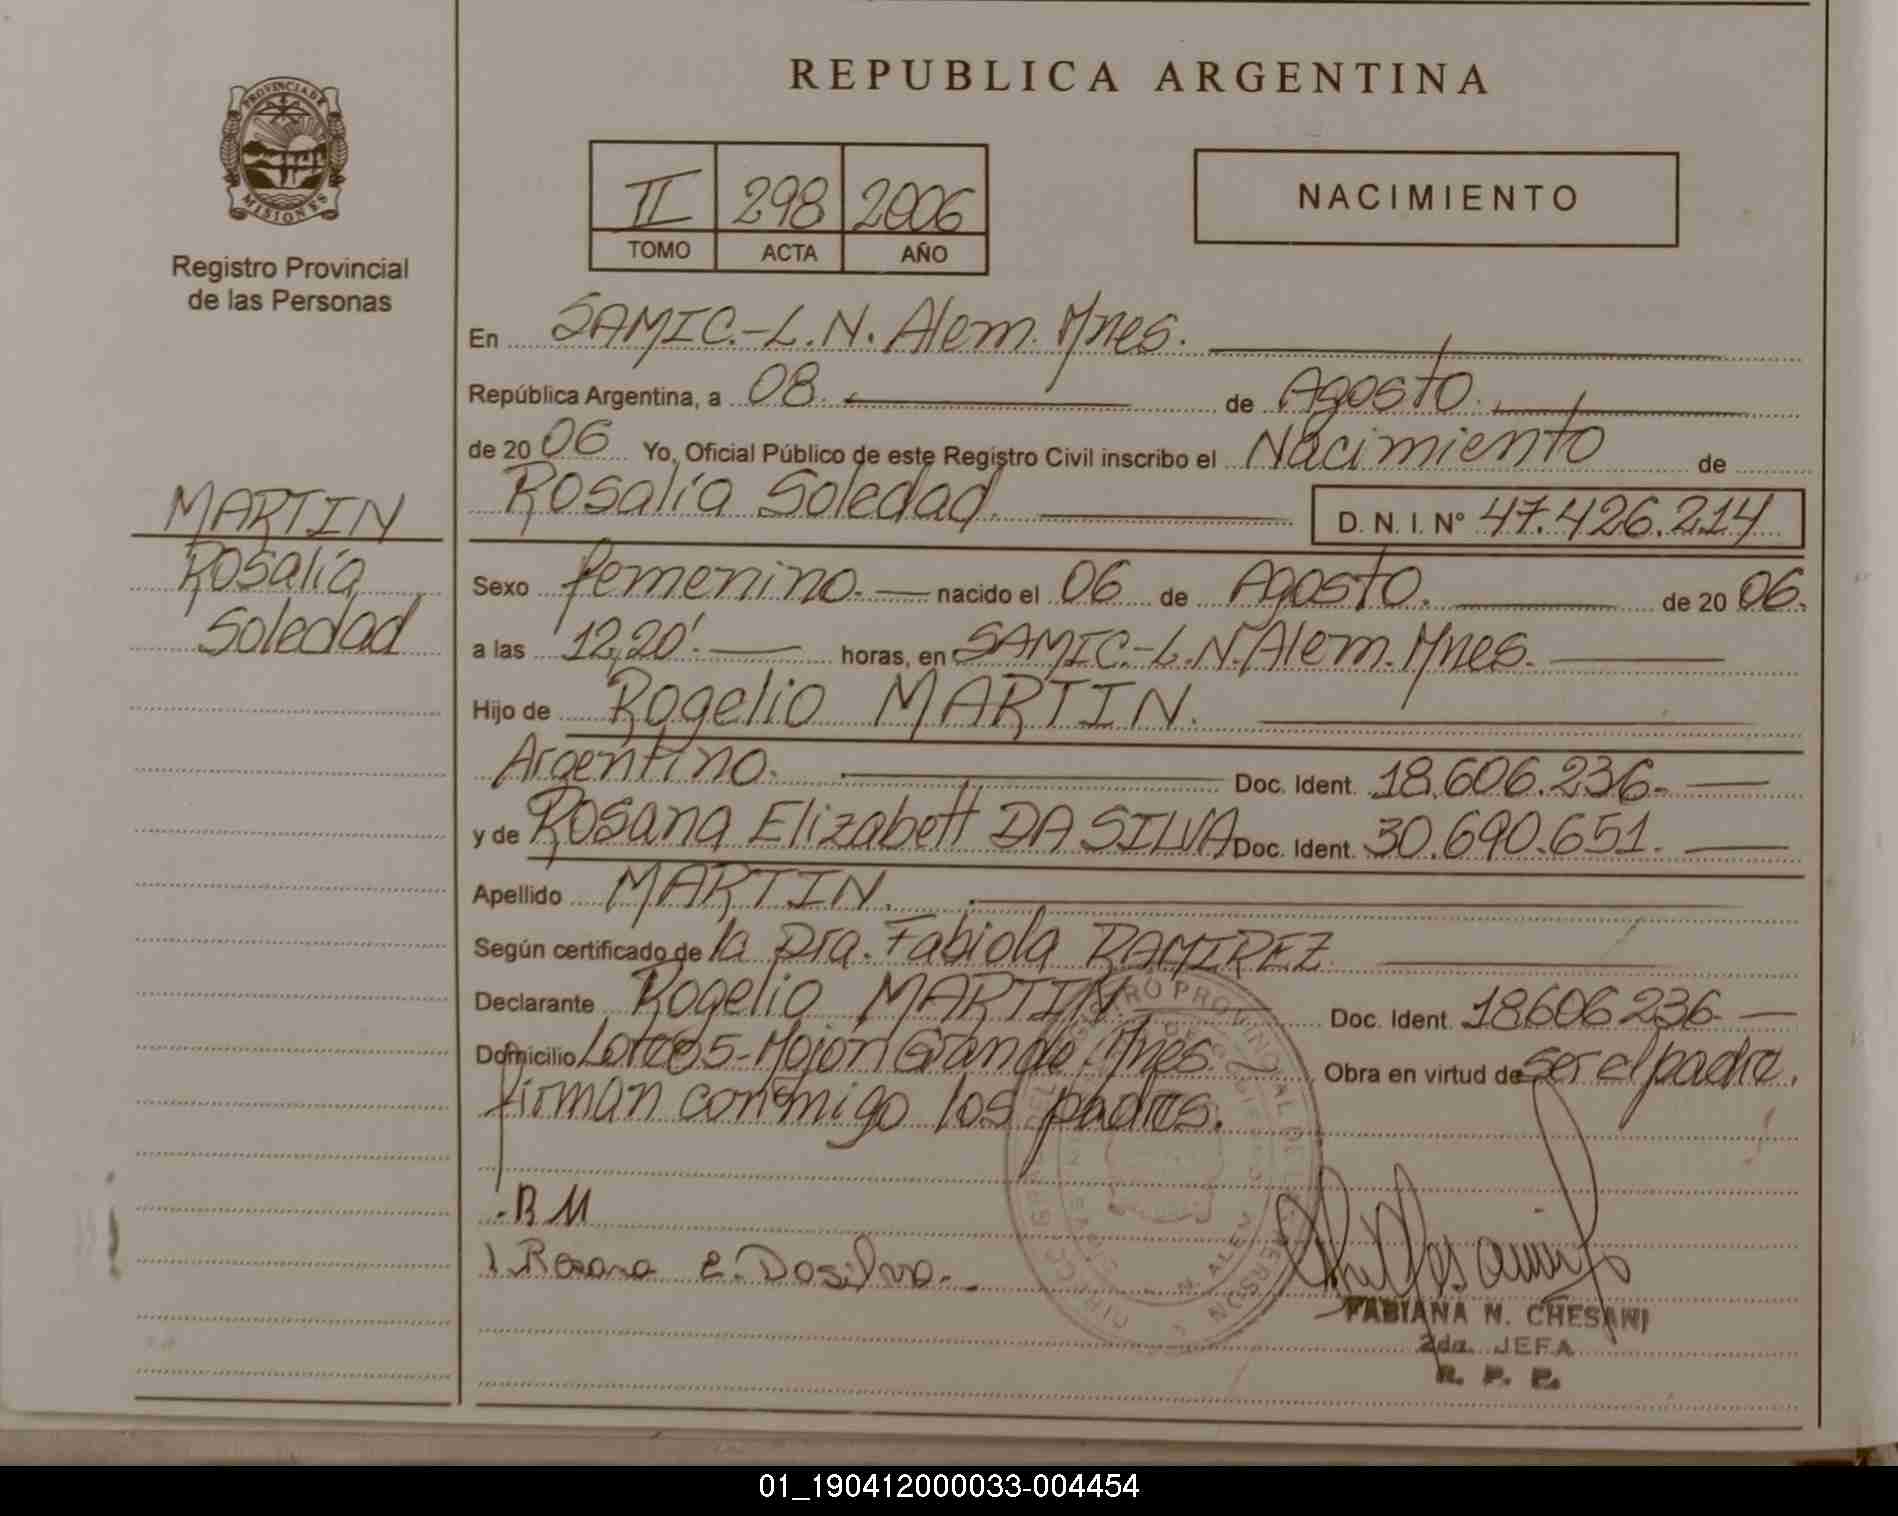 REPUBLICA ARGENTINA
PROVINCIA DE
MISIONES
Registro Provincial
de las Personas
II 298 2006
TOMO ACTA AÑO
NACIMIENTO
En SAMIC.-L.N. Alem. Mnes.
República Argentina, a 08. de Agosto.
de 20 06 Yo, Oficial Público de este Registro Civil inscribo el Nacimiento de
Rosalía Soledad. D. N. I. Nº 47.426.214
MARTIN
Rosalía
Soledad
Sexo femenino. nacido el 06 de Agosto. de 20 06.
a las 12,20'. horas, en SAMIC.-L.N. Alem. Mnes.
Hijo de Rogelio MARTIN.
Argentino. Doc. Ident. 18.606.236.
y de Rosana Elizabett DA SILVA Doc. Ident. 30.690.651.
Apellido MARTIN.
Según certificado de la Dra. Fabiola RAMIREZ
Declarante Rogelio MARTIN. Doc. Ident. 18606236
Domicilio Mojon Grande. Mnes. Obra en virtud de ser el padre.
firman conmigo los padres.
R M
Rosana E. Dasilva.
FABIANA N. CHESANI
2da. JEFA
R. P. P.
01_190412000033-004454